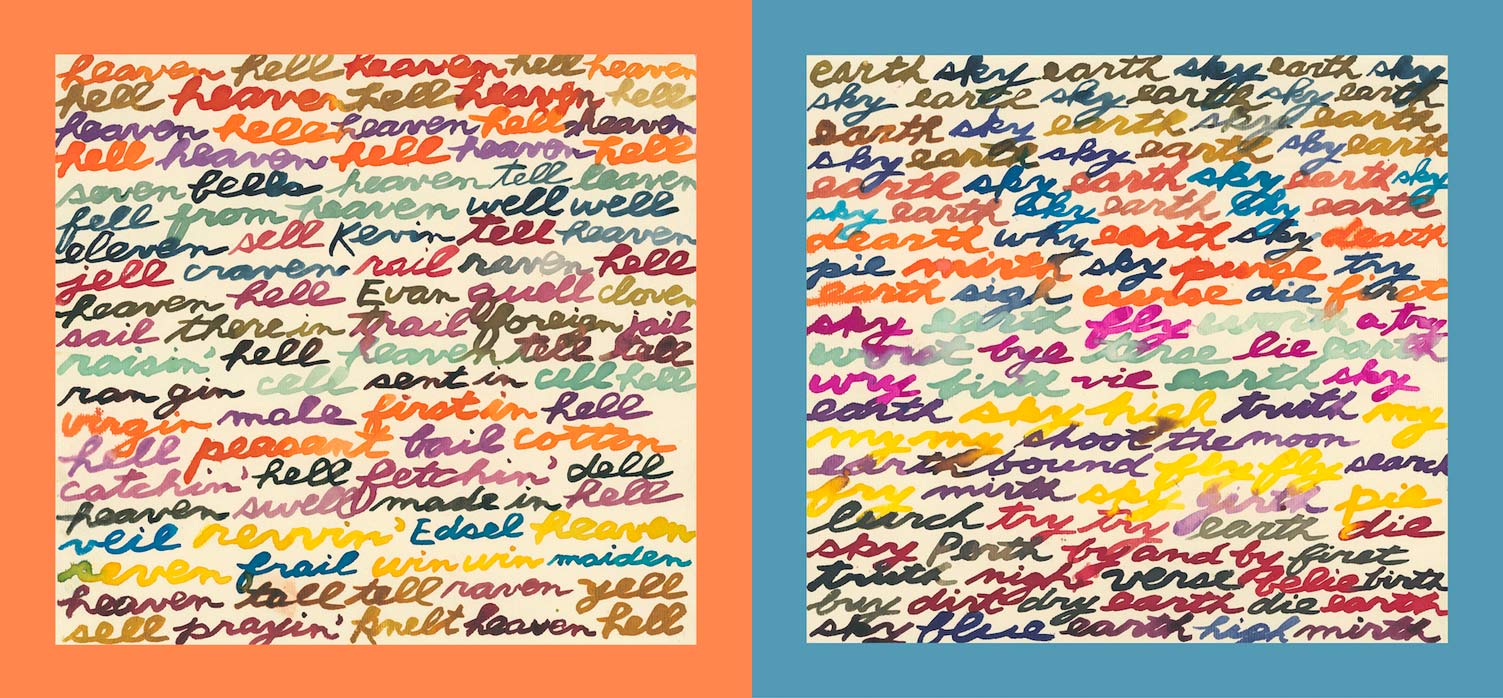 heaven hell heaven hell heaven
hell heaven hell heaven hell
heaven hell heaven hell heaven
hell heaven hell heaven hell
seven bells heaven tell leaven
fell from heaven well well
eleven sell Kevin tell heaven
jell craven rail raven hell
heaven hell Evan quell cloven
sail there in trail foreign jail
raisin' hell heaven tell tell
ran gin cell sent in cell hell
virgin male first in hell
hell peasant bail cotton
catchin' hell fetchin' dell
heaven swell made in hell
veil revvin' Edsel heaven
frail win win maiden
heaven tall tell raven yell
sell prayin' knelt heaven hell
earth sky earth sky earth sky
sky earth sky earth sky earth
earth sky earth sky earth
sky earth sky earth sky earth
earth sky earth sky earth sky
sky earth sky earth sky earth
dearth why earth sky dearth
pie mirth sky purse try
earth sigh curse die first
sky earth fly worth a try
worst bye terse lie earth
wry birth vie earth sky
earth sky high truth my
my my shoot the moon
earth bound fly fly search
fry mirth sky girth pie
lurch try try earth die
sky Perth by and by first
truth nigh verse belie birth
buy dirt dry earth die earth
sky blue earth high mirth